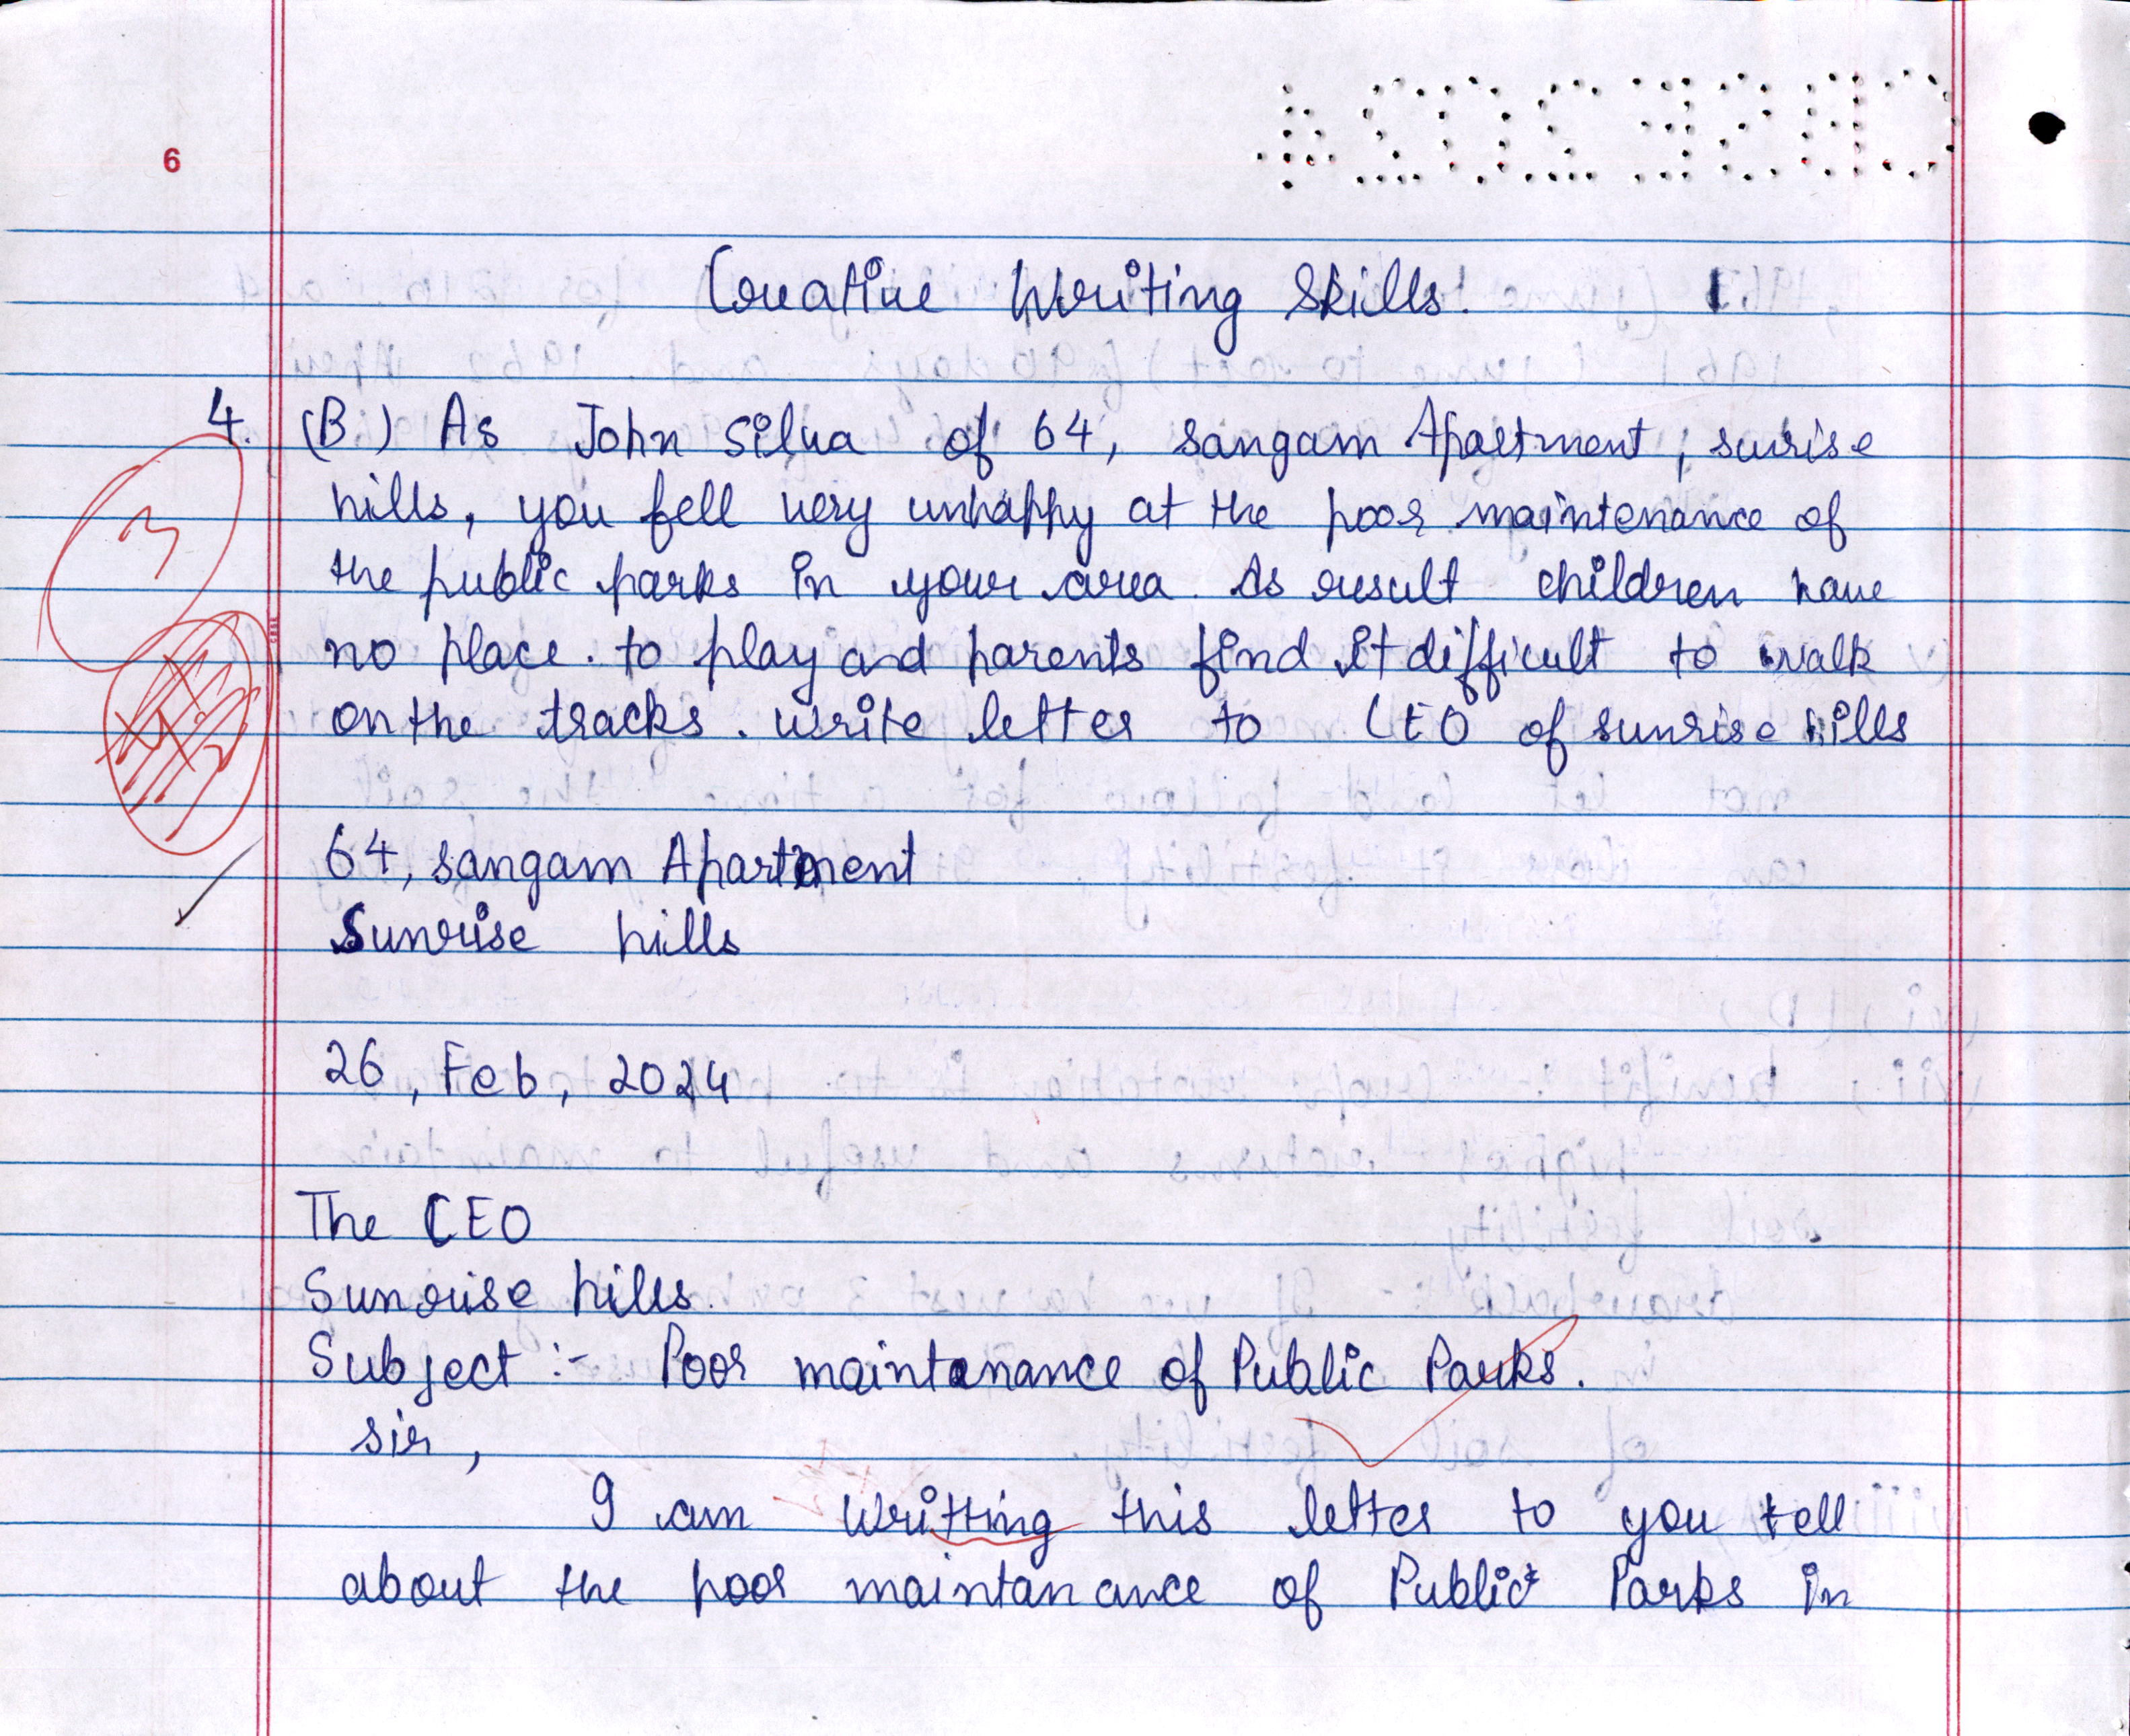 CBSE2024
6
Creative Writing Skills.
4. (B) As John Silva of 64, sangam Apartment, surise
hills, you fell very unhappy at the poor maintenance of
the public parks in your area. As result children have
no place. to play and parents find it difficult to walk
on the tracks. write letter to CEO of sunrise hills
3
64, sangam Apartment
Sunrise hills
26, Feb, 2024
The CEO
Sunrise hills.
Subject :- Poor maintanance of Public Parks.
sir,
I am writting this letter to you tell
about the poor maintanance of Public Parks in